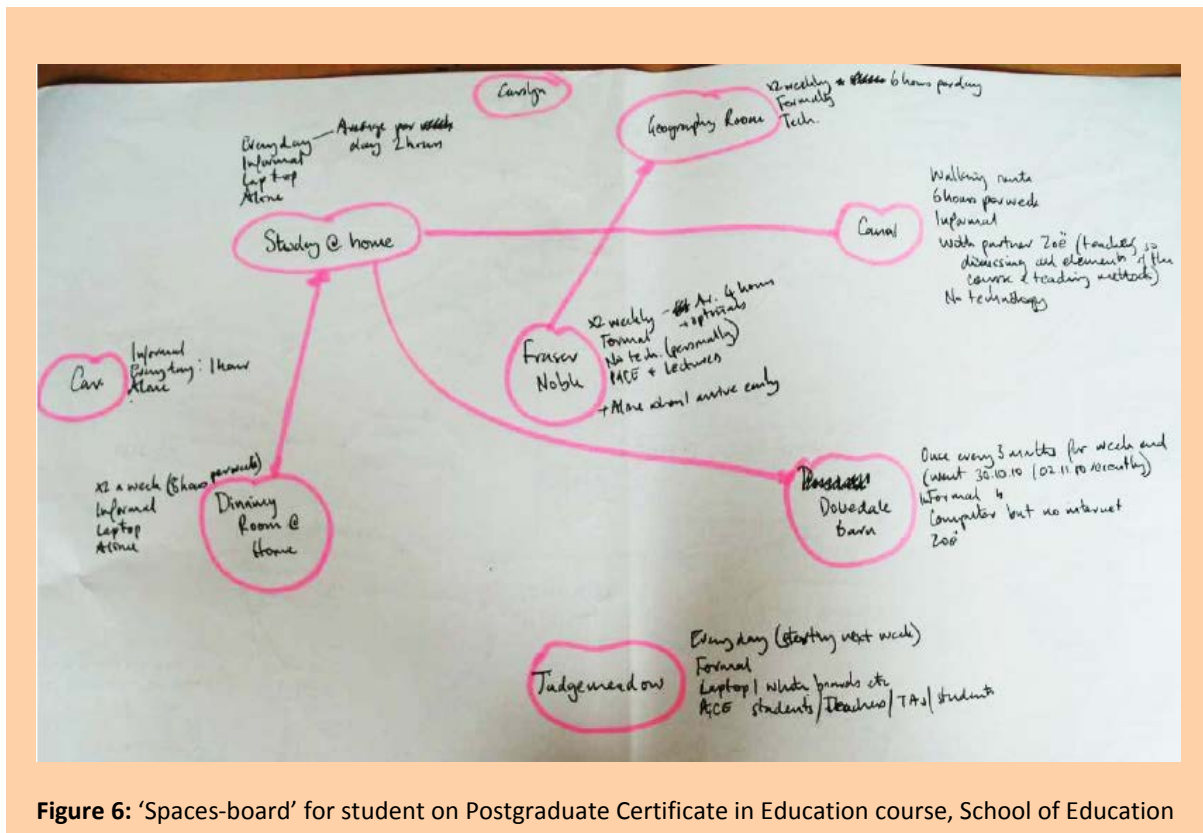 Carolyn
Everyday — Average per
day 2 hours
Informal
Laptop
Alone
Study @ home
Geography Room
x2 weekly 6 hours per day
Formally
Tech.
Canal
Walking route
6 hours per week
Informal
With partner Zoë (teacher, so
discussing all elements of the
course & teaching methods)
No technology
Fraser
Noble
x2 weekly - Av. 4 hours
Formal
No tech. (personally)
PGCE + Lectures
+ Alone when I arrive early
Car
Informal
Everyday: 1 hour
Alone
x2 a week (8 hours per week)
Informal
Laptop
Alone
Dinning
Room @
Home
Dovedale
barn
Once every 3 months for week end
(went 30.10.10 / 02.11.10 recently)
Informal
Computer but no internet
Zoë
Judgemeadow
Everyday (starting next week)
Formal
Laptop / white boards etc
PGCE students / Teachers / TAs / students
Figure 6: ‘Spaces-board’ for student on Postgraduate Certificate in Education course, School of Education